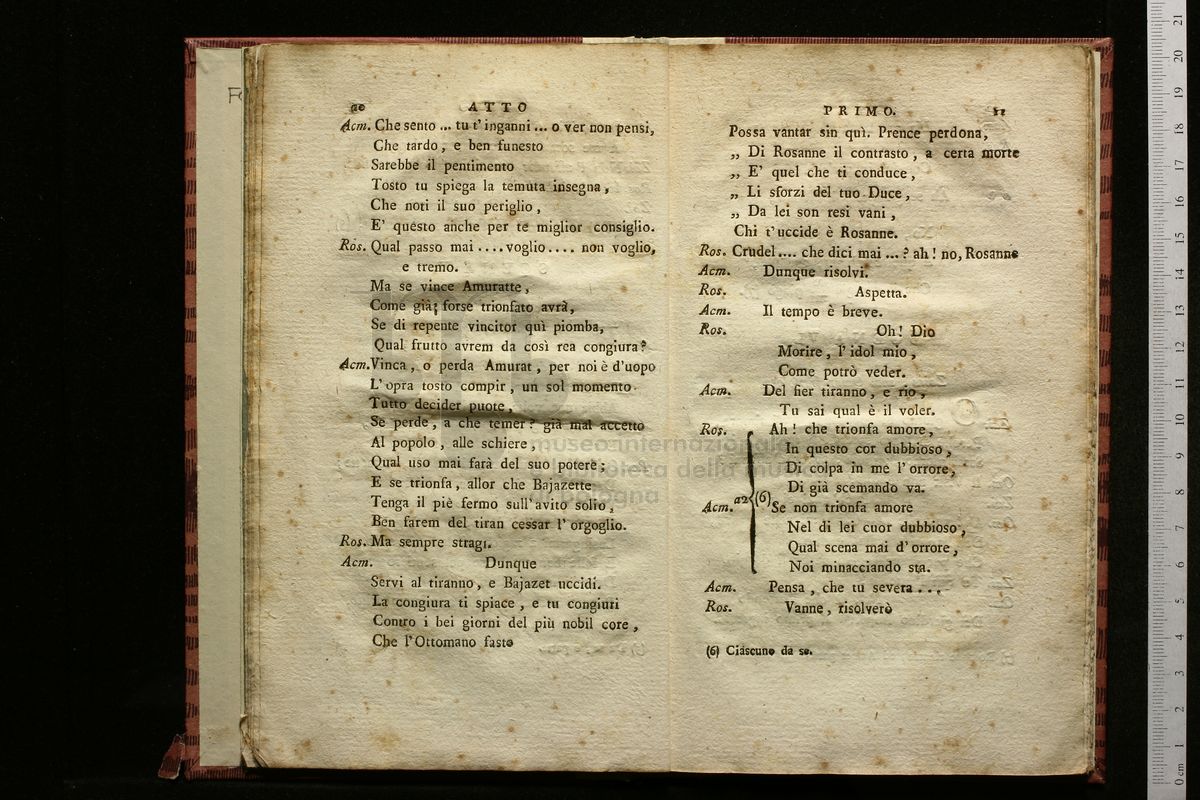 ATTO
Acm. Che sento ... tu t'inganni ... o ver non pensi,
Che tardo, e ben funesto
Sarebbe il pentimento
Tosto tu spiega la temuta insegna,
Che noti il suo periglio,
E' questo anche per te miglior consiglio.
Ros. Qual passo mai .... voglio .... non voglio,
e tremo.
Ma se vince Amuratte,
Come già; forse trionfato avrà,
Se di repente vincitor quì piomba,
Qual frutto avrem da così rea congiura?
Acm. Vinca, o perda Amurat, per noi è d'uopo
L'opra tosto compir, un sol momento
Tutto decider puote,
Se perde, a che temer? già mal accetto
Al popolo, alle schiere,
Qual uso mai farà del suo potere;
E se trionfa, allor che Bajazette
Tenga il piè fermo sull'avito solio,
Ben farem del tiran cessar l'orgoglio.
Ros. Ma sempre stragi.
Acm. Dunque
Servi al tiranno, e Bajazet uccidi.
La congiura ti spiace, e tu congiuri
Contro i bei giorni del più nobil core,
Che l'Ottomano fasto
PRIMO. 11
Possa vantar sin quì. Prence perdona,
„ Di Rosanne il contrasto, a certa morte
„ E' quel che ti conduce,
„ Li sforzi del tuo Duce,
„ Da lei son resi vani,
Chi t'uccide è Rosanne.
Ros. Crudel .... che dici mai ... ? ah! no, Rosanne
Acm. Dunque risolvi.
Ros. Aspetta.
Acm. Il tempo è breve.
Ros. Oh! Dio
Morire, l'idol mio,
Come potrò veder.
Acm. Del fier tiranno, e rio,
Tu sai qual è il voler.
Ros. Ah! che trionfa amore,
In questo cor dubbioso,
Di colpa in me l'orrore,
Di già scemando va.
a2 (6)
Acm. Se non trionfa amore
Nel di lei cuor dubbioso,
Qual scena mai d'orrore,
Noi minacciando sta.
Acm. Pensa, che tu severa ...
Ros. Vanne, risolverò
(6) Ciascuno da se.
museo internazionale
biblioteca della musica
di bologna